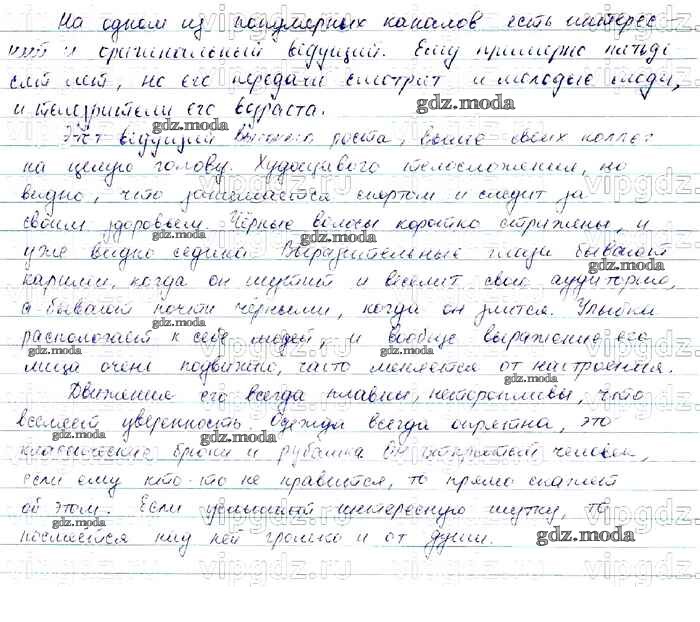 На одном из популярных каналов есть интерес
ный и оригинальный ведущий. Ему примерно пятьде
сят лет, но его передачи смотрят и молодые люди,
и телезрители его возраста.
Этот ведущий высокого роста, выше своих коллег
на целую голову. Худощавого телосложения, но
видно, что занимается спортом и следит за
своим здоровьем. Чёрные волосы коротко стрижены, и
уже видно седина. Выразительные глаза бывают
карими, когда он шутит и веселит свою аудиторию,
а бывают почти чёрными, когда он злится. Улыбка
располагает к себе людей, и вообще выражение его
лица очень подвижно, часто меняется от настроения.
Движения его всегда плавны, неторопливы, что
вселяет уверенность. Одежда всегда опрятна, это
классические брюки и рубашка. Он открытый человек,
если ему кто-то не нравится, то прямо скажет
об этом. Если услышит интересную шутку, то
посмеётся над ней громко и от души.
gdz.moda
vipgdz.ru